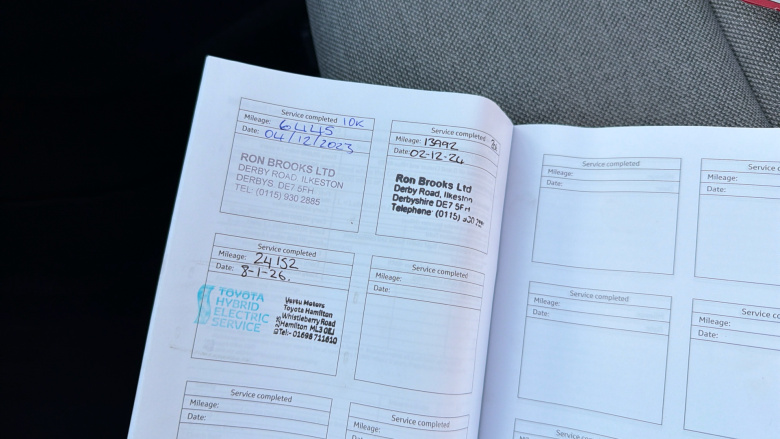 Service completed 10K
Mileage: 6445
Date: 04/12/2023
RON BROOKS LTD
DERBY ROAD, ILKESTON
DERBYS. DE7 5FH
TEL: (0115) 930 2885
Service completed
Mileage: 13992
Date: 02-12-24
Ron Brooks Ltd
Derby Road, Ilkeston
Derbyshire DE7 5FH
Telephone: (0115)
Service completed
Mileage: 24152
Date: 8-1-26.
TOYOTA
HYBRID
ELECTRIC
SERVICE
Vertu Motors
Toyota Hamilton
Whistleberry Road
Hamilton ML3 0EJ
Tel:- 01698 711610
Service completed
Mileage:
Date:
Service completed
Mileage:
Date:
Service completed
Mileage:
Date:
Service completed
Mileage:
Date:
Service comple
Mileage:
Date:
Service completed
Mileage:
Date:
Service c
Mileage:
Date:
Service completed